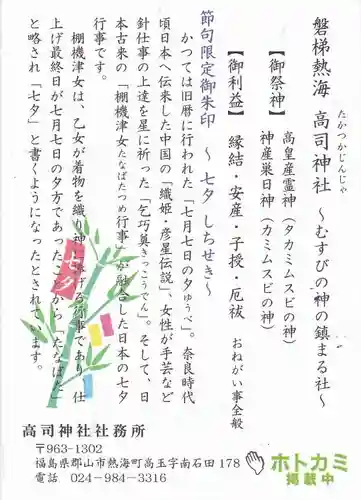 磐梯熱海 高司神社 ～むすびの神の鎮まる社～
たかつかじんじゃ
【御祭神】 高皇産霊神(タカミムスビの神)
神産巣日神(カミムスビの神)
【御利益】 縁結・安産・子授・厄祓 おねがい事全般
節句限定御朱印 ～ 七夕 しちせき～
かつては旧暦に行われた「七月七日の夕ゆうべ」。奈良時代
頃日本へ伝来した中国の「織姫・彦星伝説」、女性が手芸など
針仕事の上達を星に祈った「乞巧奠きっこうでん」。そして、日
本古来の「棚機津女たなばたつめ行事」が融合した日本の七夕
行事です。
棚機津女は、乙女が着物を織り神に捧げる行事であり、仕
上げ最終日が七月七日の夕方であったことから「たなばた」
と略され「七夕」と書くようになったとされています。
七夕
高司神社社務所
〒963-1302
福島県郡山市熱海町高玉字南石田178
電話 024-984-3316
ホトカミ
掲載中